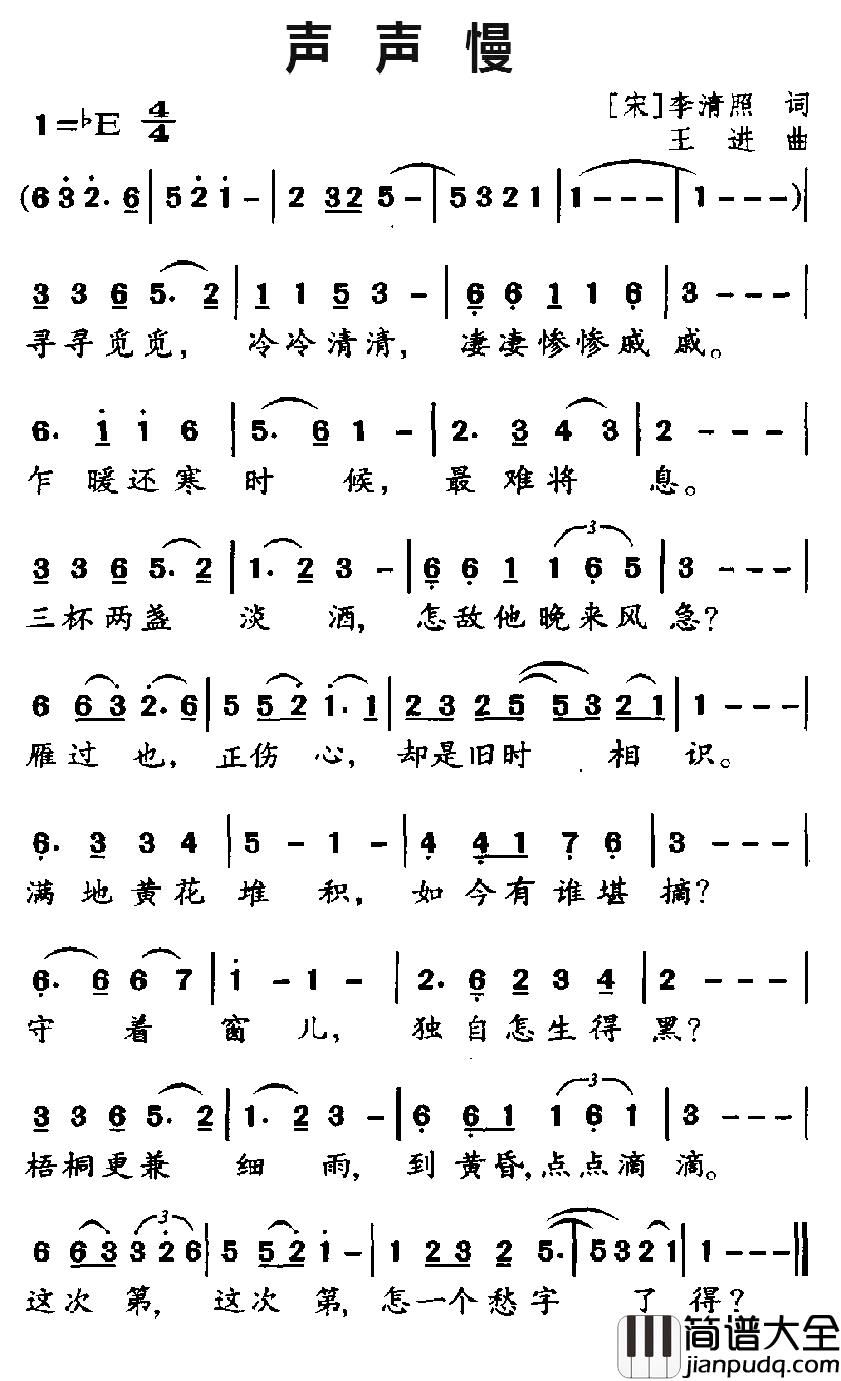 声 声 慢
1=♭E 4/4
[宋]李清照 词
王 进 曲
(6 3 2. 6 | 5 2 1 - | 2 32 5 - | 5 3 2 1 | 1 - - - | 1 - - -)|
3 3 6 5. 2 | 1 1 5 3 - | 6 6 1 1 6 | 3 - - - |
寻寻觅觅, 冷冷清清, 凄凄惨惨戚戚。
6. 1 1 6 | 5. 6 1 - | 2. 3 4 3 | 2 - - - |
乍 暖还寒时 候, 最 难将 息。
3 3 6 5. 2 | 1. 2 3 - | 6 6 1 1 6 5 | 3 - - - |
三杯两盏 淡 酒, 怎敌他晚来风急?
6 63 2.6 | 5 52 1.1 | 23 25 53 21 | 1 - - - |
雁过 也, 正伤 心, 却是旧时 相 识。
6. 3 3 4 | 5 - 1 - | 4 41 7 6 | 3 - - - |
满 地黄花堆 积, 如今有谁堪 摘?
6. 6 6 7 | 1 - 1 - | 2. 6 2 3 4 | 2 - - - |
守 着 窗 儿, 独自怎生得 黑?
3 3 6 5. 2 | 1. 2 3 - | 6 61 1 6 1 | 3 - - - |
梧桐更兼 细 雨, 到黄昏,点点滴 滴。
6 63 3 2 6 | 5 52 1 - | 1 23 2 5. | 5321 | 1 - - - ‖
这次 第, 这次 第, 怎一个愁字 了 得?
简谱大全
jianpudq.com